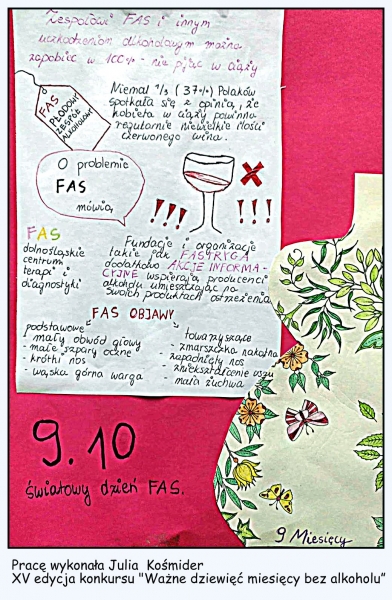 Zespołowi FAS i innym
uszkodzeniom alkoholowym można
zapobiec w 100% - nie pijąc w ciąży
FAS
PŁODOWY
ZESPÓŁ
ALKOHOLOWY
Niemal ⅓ (37%) Polaków
spotkała się z opinią, że
kobieta w ciąży powinna
regularnie niewielkie ilości
czerwonego wina.
O problemie
FAS
mówią,
!!! !!!
FAS
dolnośląskie
centrum
terapii i
diagnostyki
Fundacje i organizacje
takie jak FASTRYGA
dodatkowo AKCJE INFORMA-
CYJNE wspierają producenci
alkoholu umieszczając na
swoich produktach ostrzeżenia
FAS OBJAWY
podstawowe
- mały obwód głowy
- małe szpary oczne
- krótki nos
- wąska górna warga
towarzyszące
- zmarszczka nakątna
- zapadnięty nos
- zniekształcenie uszu
- mała żuchwa
9.10
światowy dzień FAS.
9 Miesięcy
Pracę wykonała Julia Kośmider
XV edycja konkursu "Ważne dziewięć miesięcy bez alkoholu"